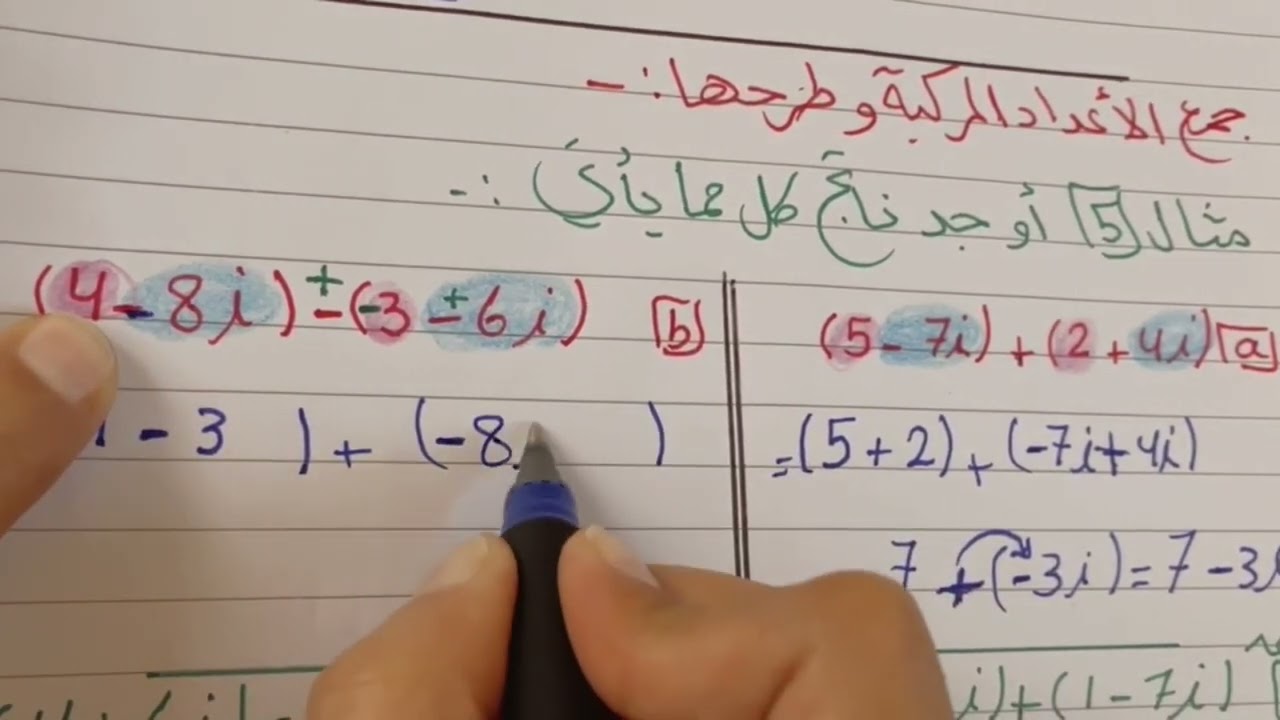 جمع الأعداد المركبة وطرحها :-
مثال [5] أوجد ناتج كل مما يأتي :-
[a] (5 - 7i) + (2 + 4i)
= (5 + 2) + (-7i + 4i)
7 + (-3i) = 7 - 3i
[b] (4 - 8i) ± (-3 ± 6i)
- 3 ) + (-8 )
i) + (1 - 7i)